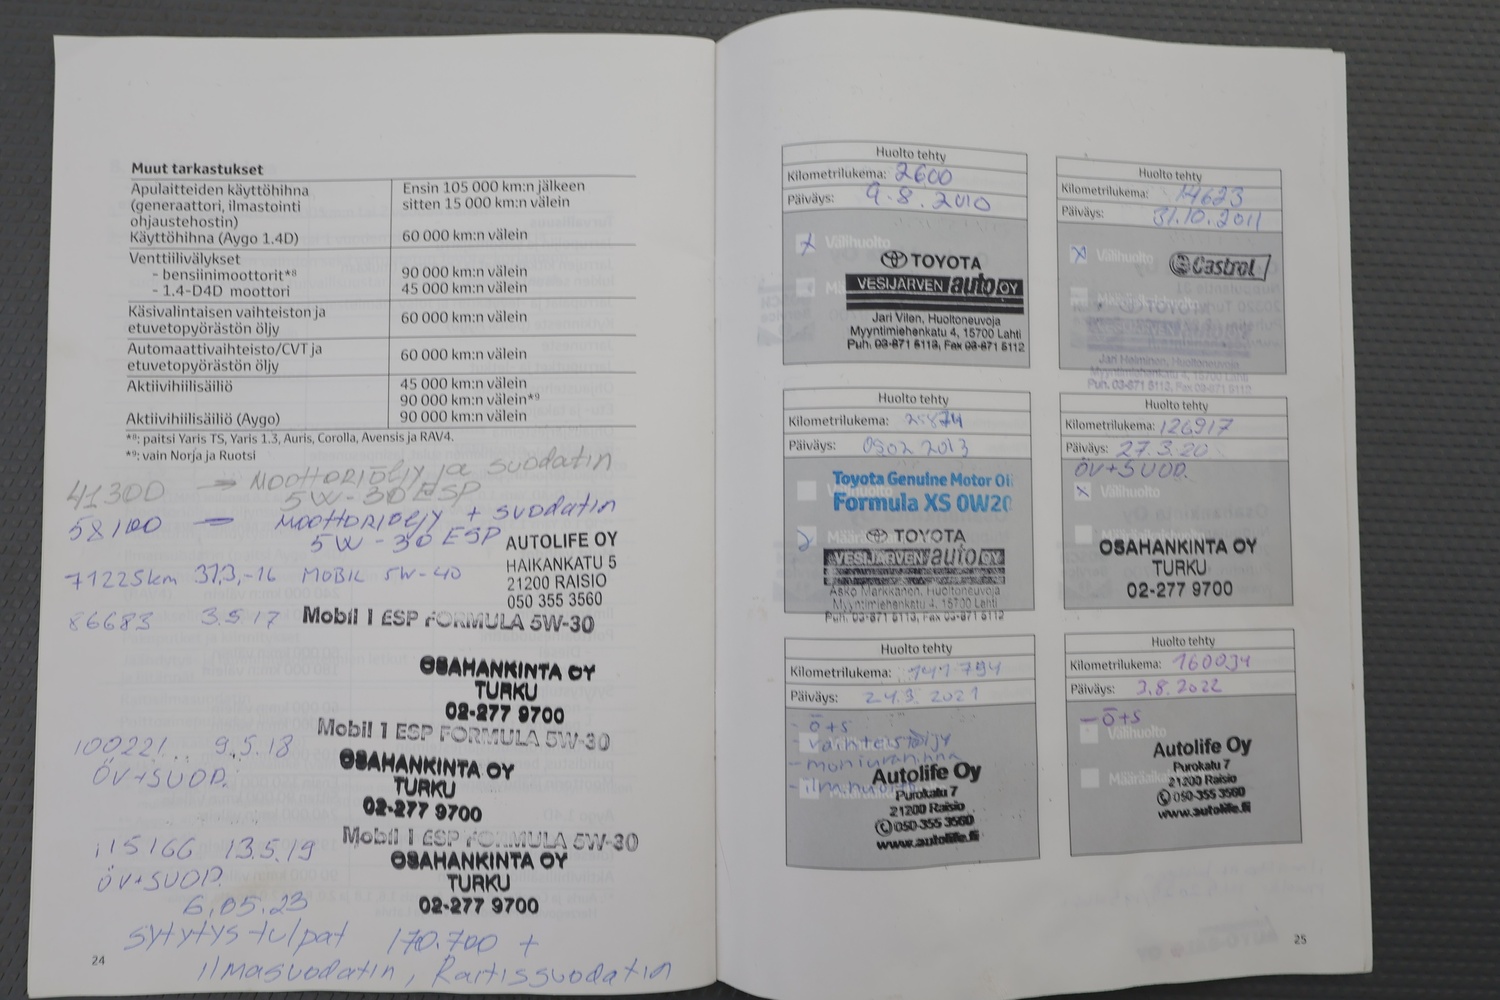 Muut tarkastukset
Apulaitteiden käyttöhihna
(generaattori, ilmastointi
ohjaustehostin)
Ensin 105 000 km:n jälkeen
sitten 15 000 km:n välein
Käyttöhihna (Aygo 1.4D) 60 000 km:n välein
Venttiilivälykset
- bensiinimoottorit*⁸ 90 000 km:n välein
- 1.4-D4D moottori 45 000 km:n välein
Käsivalintaisen vaihteiston ja
etuvetopyörästön öljy
60 000 km:n välein
Automaattivaihteisto/CVT ja
etuvetopyörästön öljy
60 000 km:n välein
Aktiivihiilisäiliö 45 000 km:n välein
90 000 km:n välein*⁹
Aktiivihiilisäiliö (Aygo) 90 000 km:n välein
*⁸: paitsi Yaris TS, Yaris 1.3, Auris, Corolla, Avensis ja RAV4.
*⁹: vain Norja ja Ruotsi
41300 → MOOTTORIÖLJY ja suodatin
5W-30 ESP
58100 → MOOTTORIÖLJY + suodatin
5W-30 ESP
AUTOLIFE OY
HAIKANKATU 5
21200 RAISIO
050 355 3560
71225km 31,3,-16 MOBIL 5W-40
86683 3.5.17 Mobil 1 ESP FORMULA 5W-30
OSAHANKINTA OY
TURKU
02-277 9700
Mobil 1 ESP FORMULA 5W-30
100221 9.5.18
ÖV+SUOD.
OSAHANKINTA OY
TURKU
02-277 9700
Mobil 1 ESP FORMULA 5W-30
115166 13.5.19
ÖV+SUOD.
OSAHANKINTA OY
TURKU
02-277 9700
6.05.23
sytytystulpat 170.700 +
ilmasuodatin, Raitissuodatin
24
Huolto tehty
Kilometrilukema: 2600
Päiväys: 9.8.2010
x Välihuolto
TOYOTA
VESIJÄRVEN auto OY
Jari Vilen, Huoltoneuvoja
Myyntimiehenkatu 4, 15700 Lahti
Puh. 03-871 5113, Fax 03-871 5112
Huolto tehty
Kilometrilukema: 14623
Päiväys: 31.10.2011
x Välihuolto
Castrol
TOYOTA
Jari Helminen, Huoltoneuvoja
Myyntimiehenkatu 4, 15700 Lahti
Puh. 03-871 5113, Fax 03-871 5112
Huolto tehty
Kilometrilukema: 25874
Päiväys: 05.02 2013
Välihuolto
Toyota Genuine Motor Oil
Formula XS 0W20
TOYOTA
VESIJÄRVEN auto OY
Asko Markkanen, Huoltoneuvoja
Myyntimiehenkatu 4, 15700 Lahti
Puh. 03-871 5113, Fax 03-871 5112
Huolto tehty
Kilometrilukema: 126917
Päiväys: 27.3.20
ÖV+SUOD.
x Välihuolto
OSAHANKINTA OY
TURKU
02-277 9700
Huolto tehty
Kilometrilukema: 141 794
Päiväys: 24.3. 2021
- ö+s
- vaihteistoöljy
- moniurahihna
- ilm.huolto
Autolife Oy
Purokatu 7
21200 Raisio
050-355 3560
www.autolife.fi
Huolto tehty
Kilometrilukema: 160034
Päiväys: 3.8.2022
- ö+s
Välihuolto
Autolife Oy
Purokatu 7
21200 Raisio
050-355 3560
www.autolife.fi
25